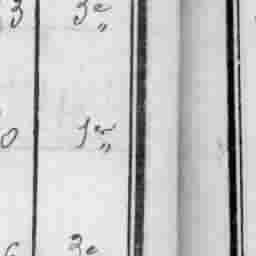 3 3e „
0 1er „
6 3e